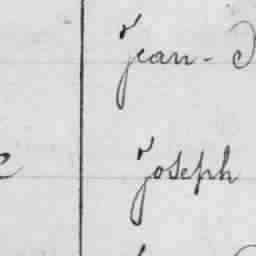 Jean-
Joseph